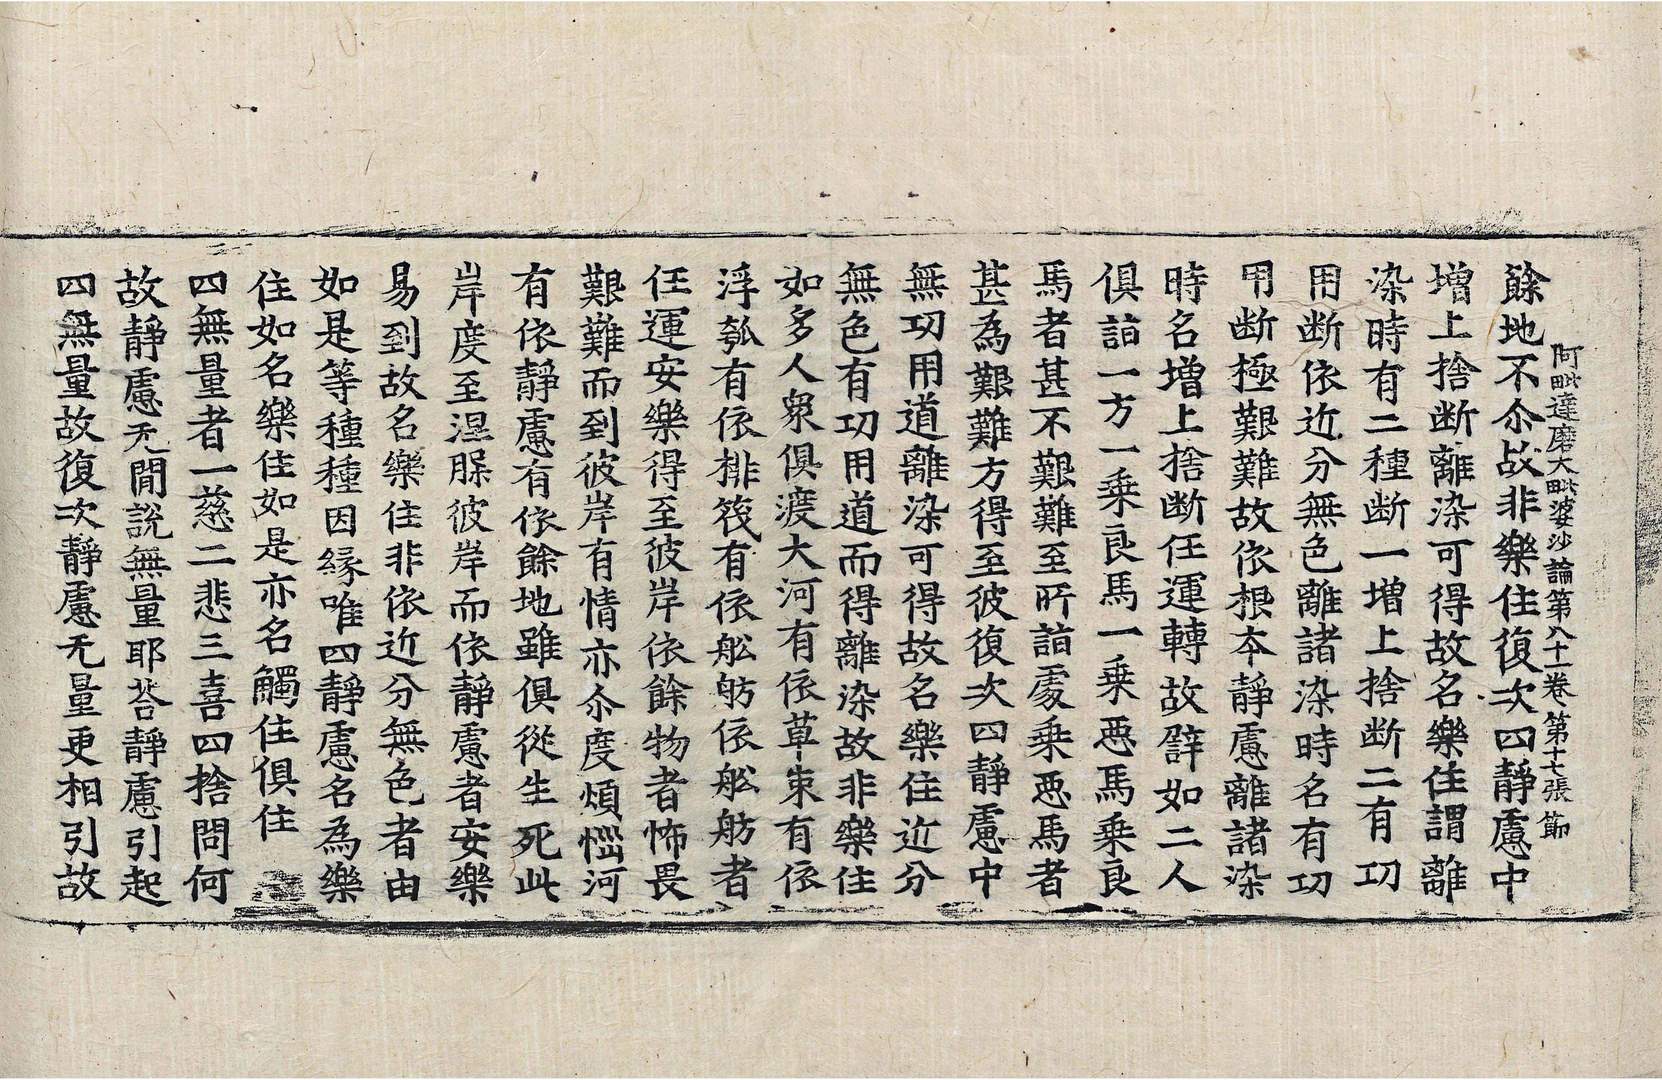 阿毗達磨大毗婆沙論第八十一卷第十七張 節
餘地不尒故非樂住復次四靜慮中
增上捨断離染可得故名樂住謂離
染時有二種断一增上捨断二有功
用断依近分無色離諸染時名有功
用断極艱難故依根夲靜慮離諸染
時名增上捨断任運轉故譬如二人
俱詣一方一乗良馬一乗惡馬乗良
馬者甚不艱難至所詣處乗惡馬者
甚為艱難方得至彼復次四靜慮中
無功用道離染可得故名樂住近分
無色有功用道而得離染故非樂住
如多人衆俱渡大河有依草束有依
浮瓠有依排筏有依舩舫依舩舫者
任運安樂得至彼岸依餘物者怖畏
艱難而到彼岸有情亦尒度煩惱河
有依靜慮有依餘地雖俱從生死此
岸度至涅槃彼岸而依靜慮者安樂
易到故名樂住非依近分無色者由
如是等種種因緣唯四靜慮名為樂
住如名樂住如是亦名觸住俱住
四無量者一慈二悲三喜四捨問何
故靜慮无閒說無量耶荅靜慮引起
四無量故復次靜慮无量更相引故